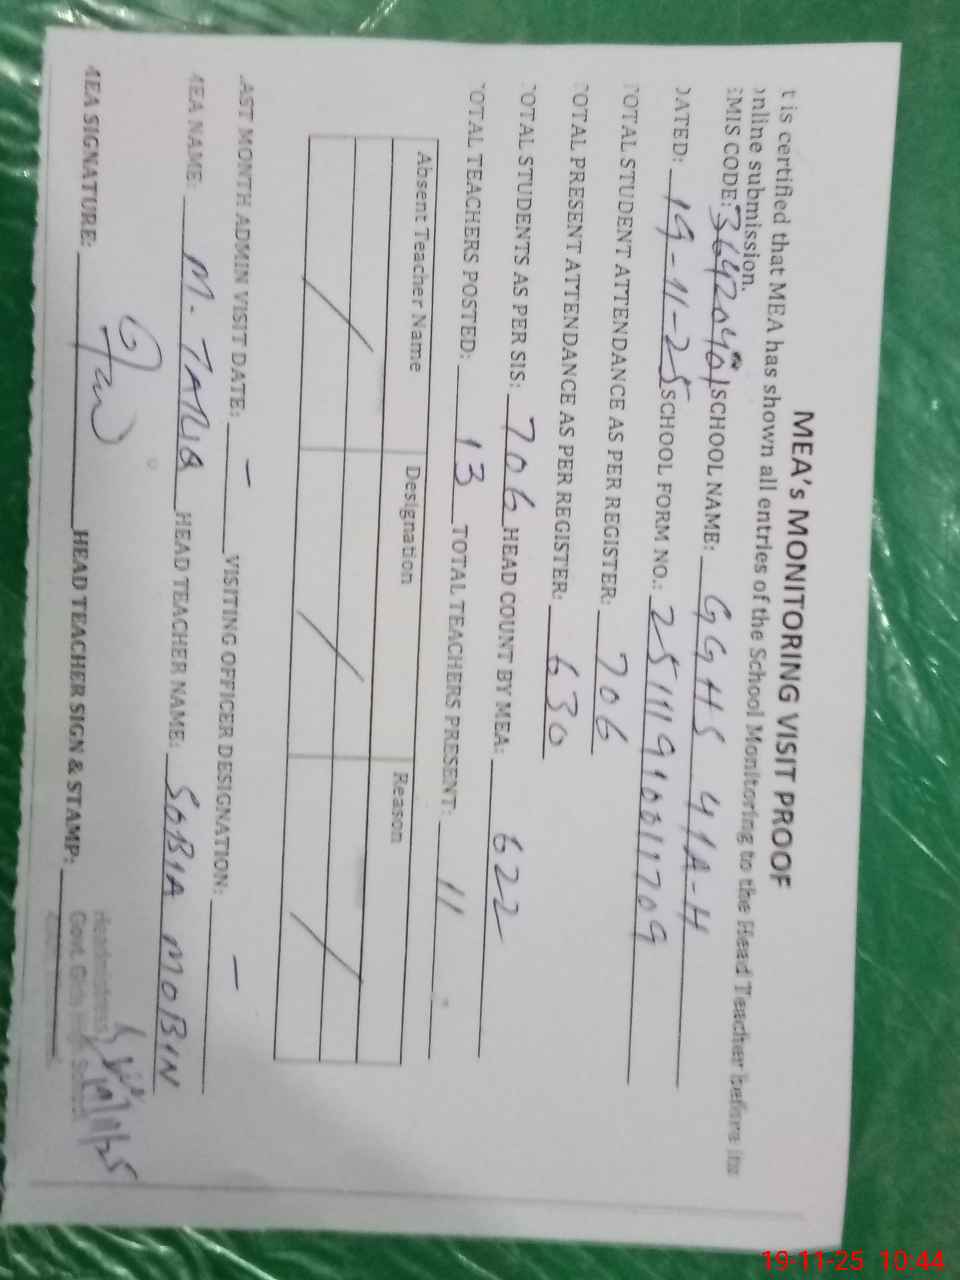 MEA's MONITORING VISIT PROOF
t is certified that MEA has shown all entries of the School Monitoring to the Head Teacher before its
nline submission.
EMIS CODE: 36420401 SCHOOL NAME: GGHS 41A-H
DATED: 19-11-25 SCHOOL FORM NO.: 25111910011709
TOTAL STUDENT ATTENDANCE AS PER REGISTER: 706
TOTAL PRESENT ATTENDANCE AS PER REGISTER: 630
TOTAL STUDENTS AS PER SIS: 706 HEAD COUNT BY MEA: 622
TOTAL TEACHERS POSTED: 13 TOTAL TEACHERS PRESENT: 11
Absent Teacher Name Designation Reason
/ / /
LAST MONTH ADMIN VISIT DATE: - VISITING OFFICER DESIGNATION: -
MEA NAME: M. TARIQ HEAD TEACHER NAME: SOBIA MOBIN
MEA SIGNATURE: HEAD TEACHER SIGN & STAMP:
Headmistress
Govt. Girls High School
19/11/25
19-11-25 10:44